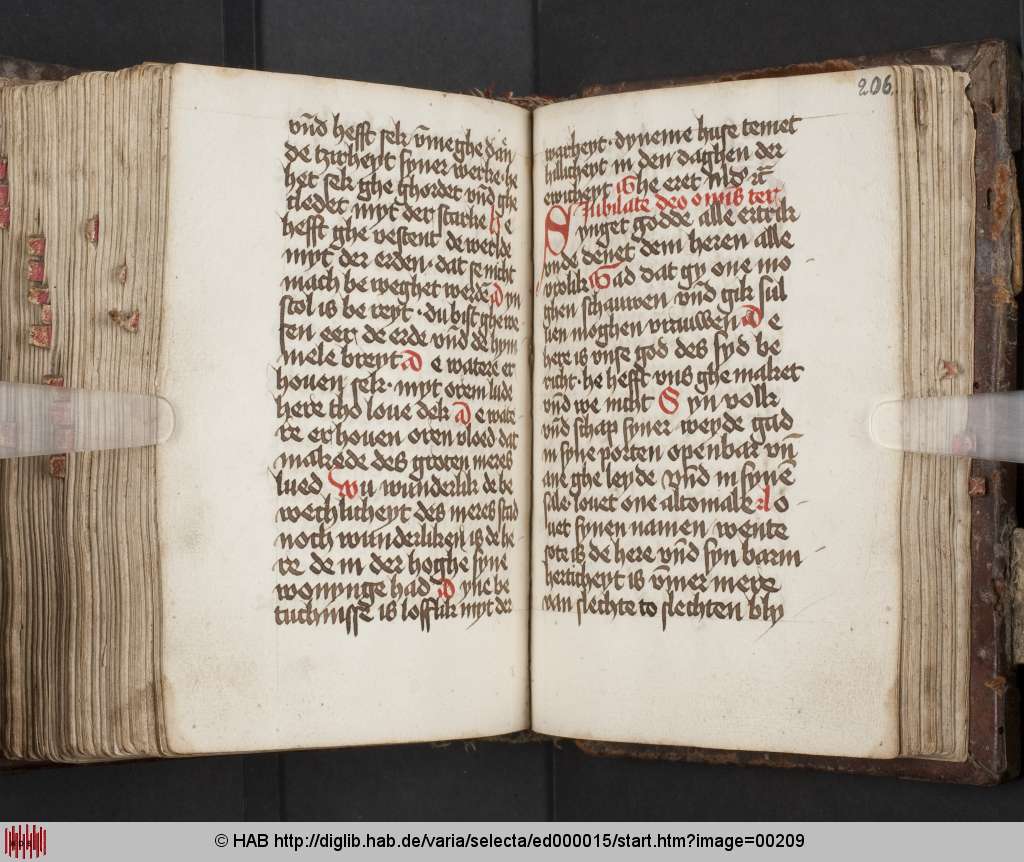 vn̄d hefft sek v̄me ghe dā
de czirheyt syner werke · he
het sek ghe ghordet vn̄d ghe
cledet myt der starke h e
hefft ghe vestent de werlde
myt der erden · dat se nicht
mach be weghet werdē D yn
stol is be reyt · du bist ghe we
sen eer de erde vn̄d de hym
mele breyt D e watere er
houen sek · myt orem lude
here tho loue dek D e wate
re er houen oren vloed dat
makede des groten meres
lued W u wunderlik de be
wechlicheyt des meres stad
noch wunderliken is de he
re de in der hoghe syne
wonynge had D yne be
tuchnisse is lofflik myt der
206
warheyt · dyneme huse temet
hillicheyt in den daghen der
ewicheyt Ghe eret
Iubilate deo omīs ter
S ynget godde alle ertrik
vn̄de denet dem heren alle
vrolik G ad dat gy one mo
ghen schauwen vn̄d gik sul
uen moghen vrauwen D e
here is vnse god des syd be
richt · he hefft vns ghe maket
vn̄d we nicht S yn volk
vn̄d schap syner weyde gad
in syne porten openbar vn̄
ane ghe leyde vn̄d in synē
sale · louet one altomale L o
uet synen namen wente
sote is de here vn̄d syn barm
herticheyt is v̄mer mere
van slechte to slechten bly
© HAB http://diglib.hab.de/varia/selecta/ed000015/start.htm?image=00209